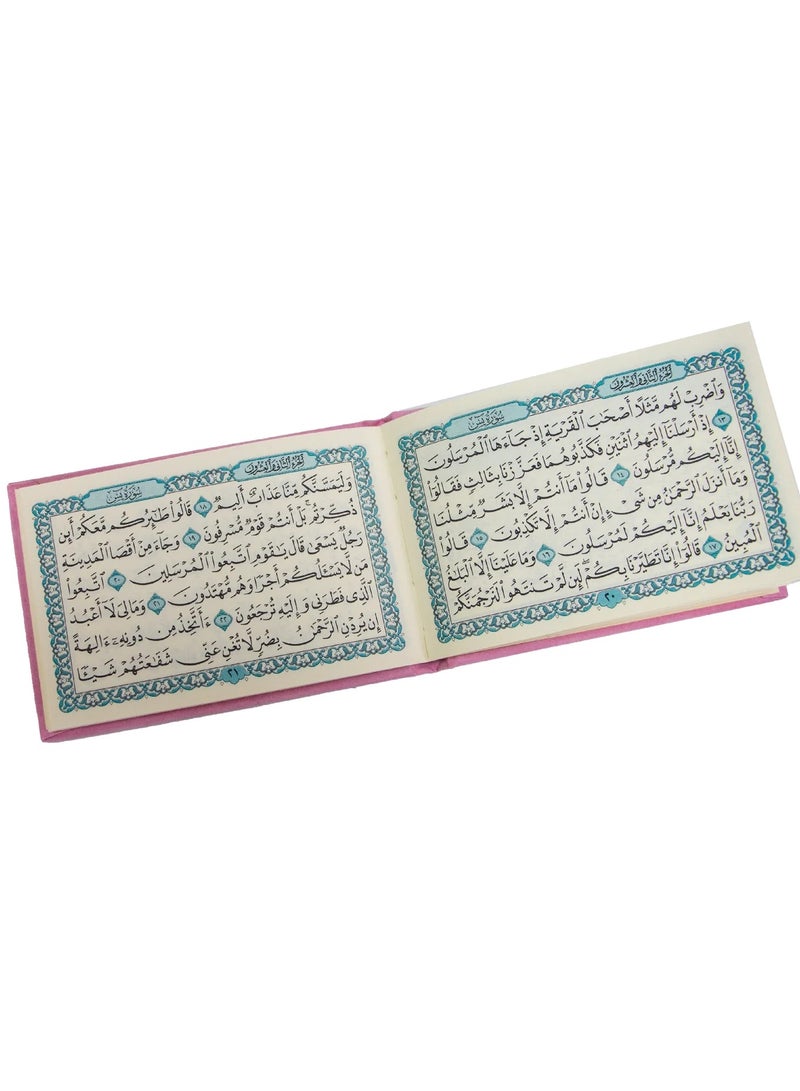 الجزء الثاني والعشرون
سورة يس
وَاضْرِبْ لَهُم مَّثَلًا أَصْحَٰبَ الْقَرْيَةِ إِذْ جَاءَهَا الْمُرْسَلُونَ
١٣ إِذْ أَرْسَلْنَا إِلَيْهِمُ اثْنَيْنِ فَكَذَّبُوهُمَا فَعَزَّزْنَا بِثَالِثٍ فَقَالُوا
إِنَّا إِلَيْكُم مُّرْسَلُونَ ١٤ قَالُوا مَا أَنتُمْ إِلَّا بَشَرٌ مِّثْلُنَا
وَمَا أَنزَلَ الرَّحْمَٰنُ مِن شَيْءٍ إِنْ أَنتُمْ إِلَّا تَكْذِبُونَ ١٥ قَالُوا
رَبُّنَا يَعْلَمُ إِنَّا إِلَيْكُمْ لَمُرْسَلُونَ ١٦ وَمَا عَلَيْنَا إِلَّا الْبَلَٰغُ
الْمُبِينُ ١٧ قَالُوا إِنَّا تَطَيَّرْنَا بِكُمْ لَئِن لَّمْ تَنتَهُوا لَنَرْجُمَنَّكُمْ
٢٠
الجزء الثاني والعشرون
سورة يس
وَلَيَمَسَّنَّكُم مِّنَّا عَذَابٌ أَلِيمٌ ١٨ قَالُوا طَٰئِرُكُم مَّعَكُمْ أَئِن
ذُكِّرْتُم بَلْ أَنتُمْ قَوْمٌ مُّسْرِفُونَ ١٩ وَجَاءَ مِنْ أَقْصَا الْمَدِينَةِ
رَجُلٌ يَسْعَىٰ قَالَ يَٰقَوْمِ اتَّبِعُوا الْمُرْسَلِينَ ٢٠ اتَّبِعُوا
مَن لَّا يَسْـَٔلُكُمْ أَجْرًا وَهُم مُّهْتَدُونَ ٢١ وَمَالِيَ لَا أَعْبُدُ
الَّذِي فَطَرَنِي وَإِلَيْهِ تُرْجَعُونَ ٢٢ ءَأَتَّخِذُ مِن دُونِهِ ءَالِهَةً
إِن يُرِدْنِ الرَّحْمَٰنُ بِضُرٍّ لَّا تُغْنِ عَنِّي شَفَٰعَتُهُمْ شَيْـًٔا
٢١